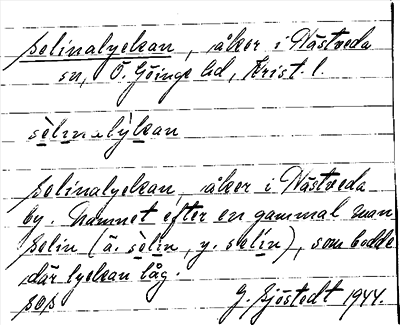 selinalyckan, åker i Nästveda
sn, Ö. Göinge hd, Krist. l.
sèlinalỳkan
selinalyckan, åker i Nästveda
by. Namnet efter en gammal man
selin (ä. sèlin, y. selín), som bodde
där lyckan låg.
G. Sjöstedt 1944.